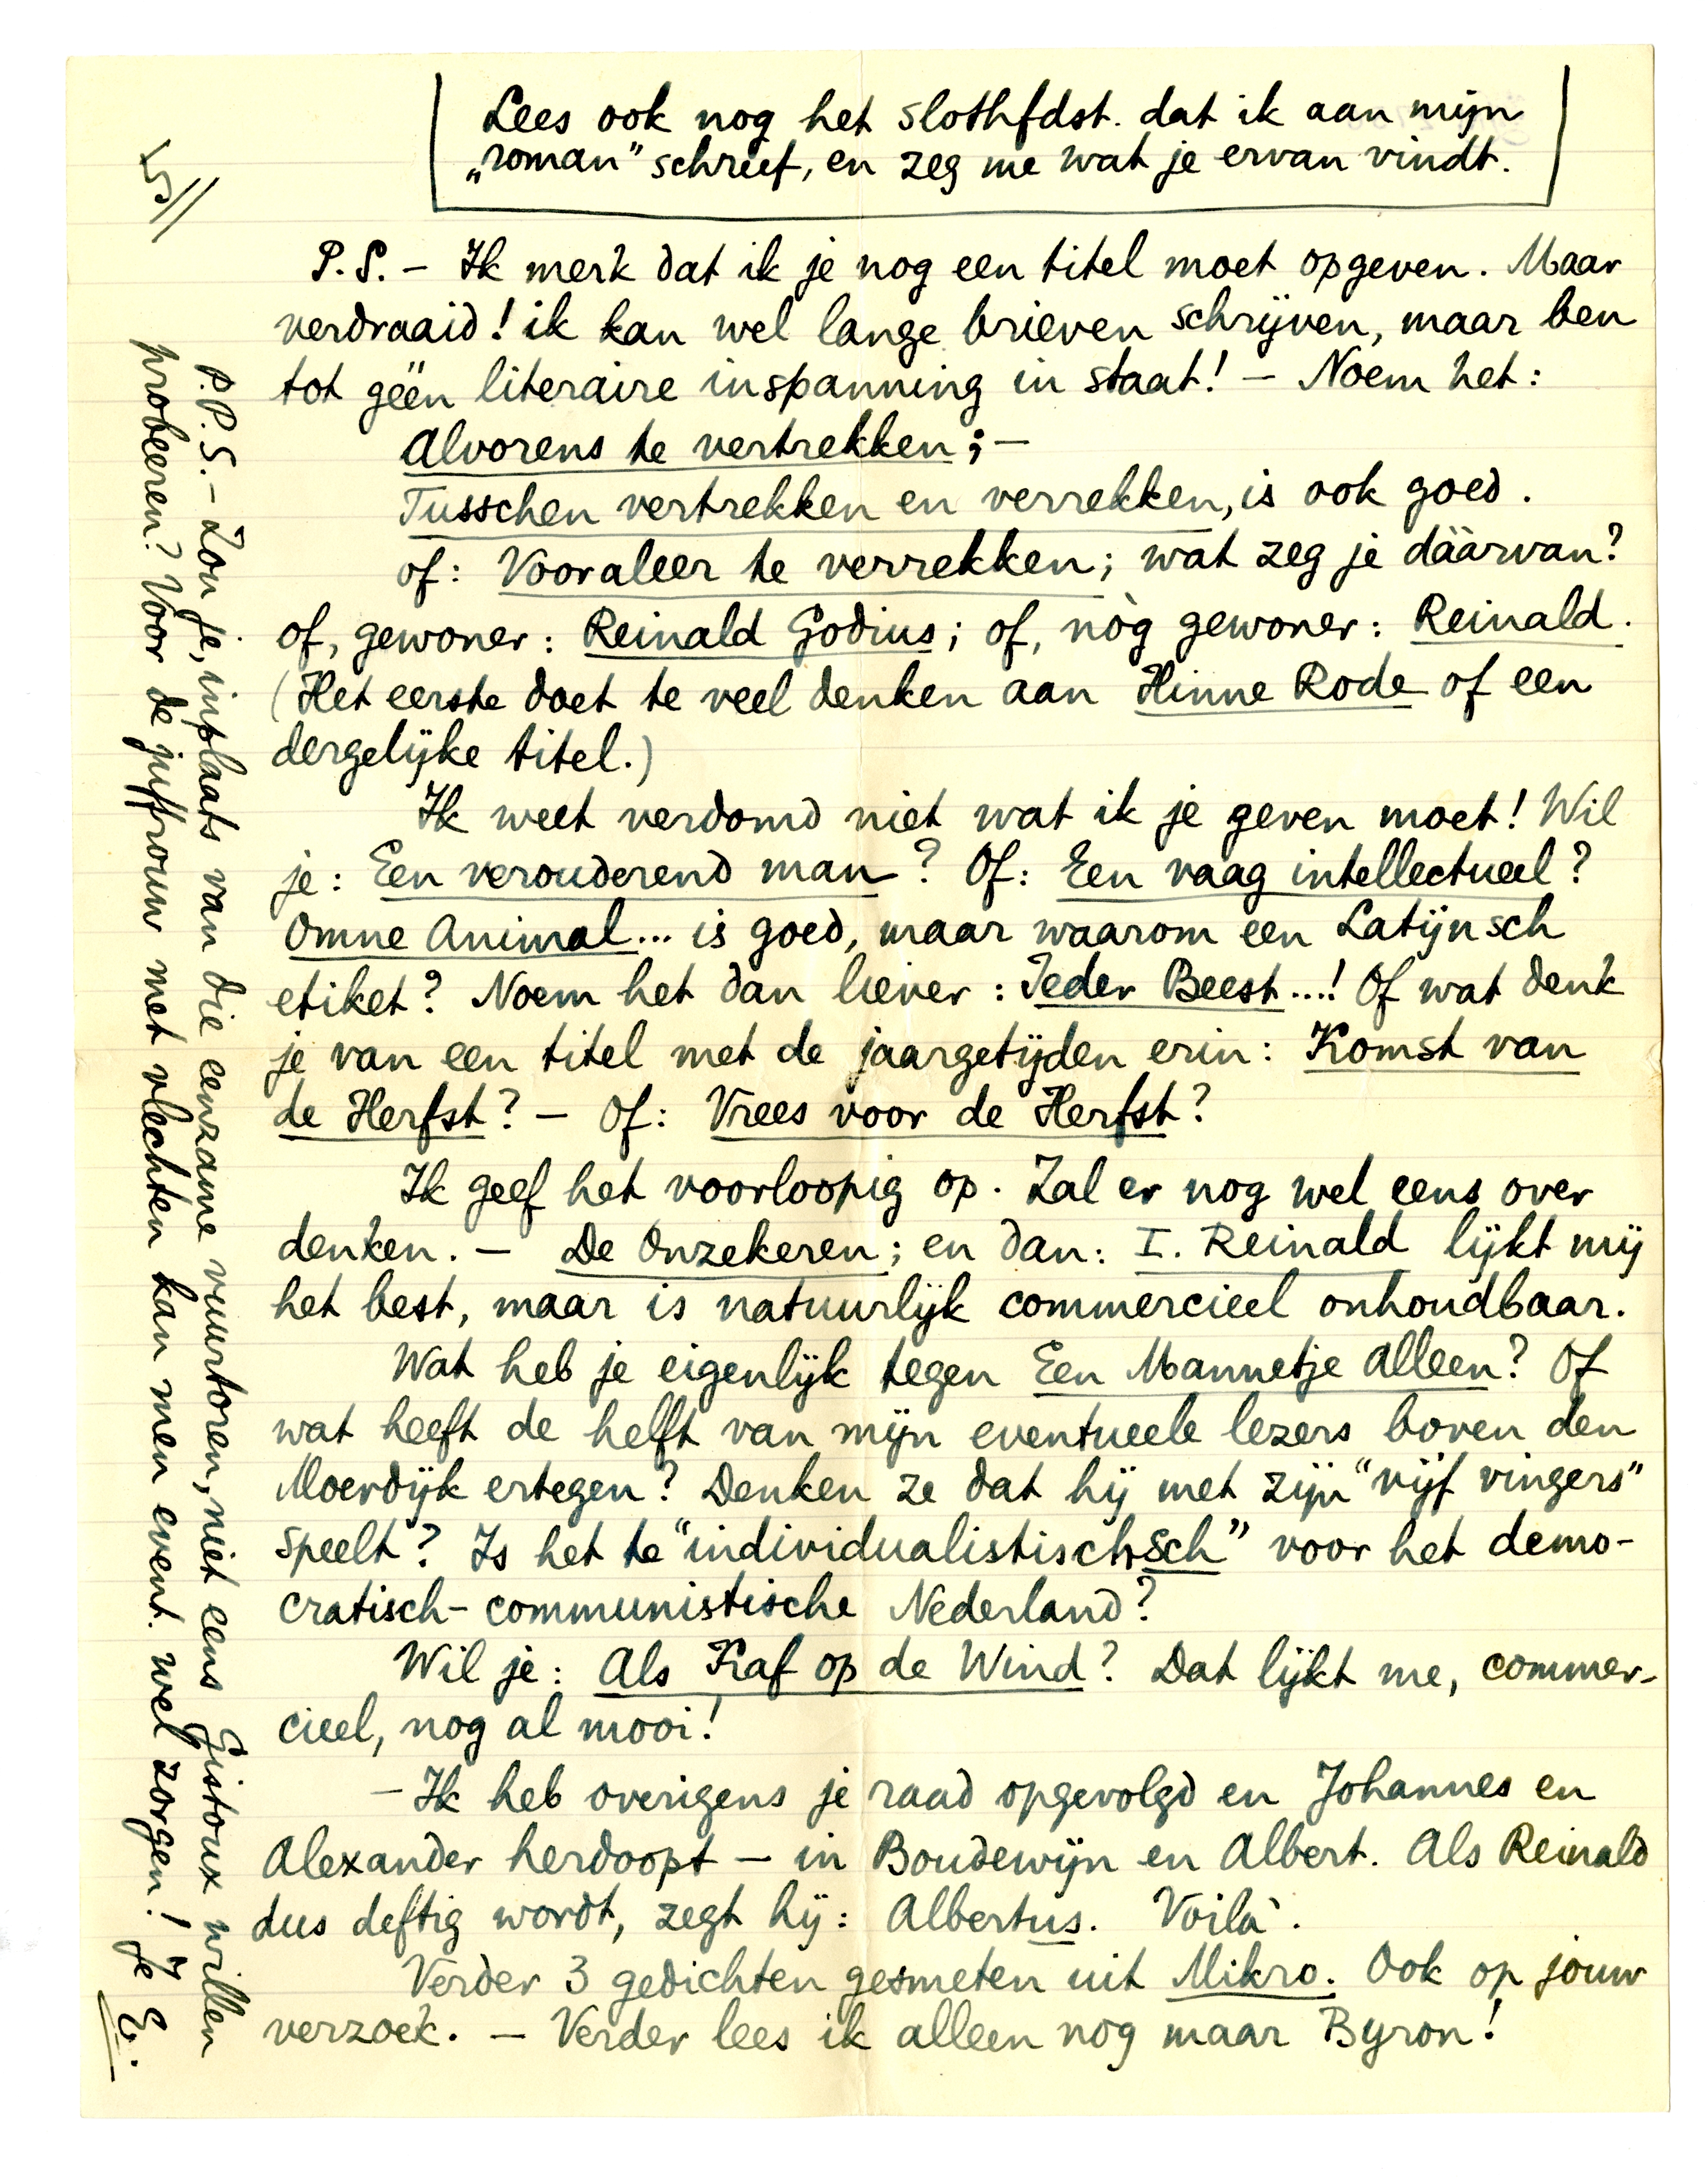 Lees ook nog het slothfdst. dat ik aan mijn
„roman” schreef, en zeg me wat je ervan vindt.
5//
P.S. – Ik merk dat ik je nog een titel moet opgeven. Maar
verdraaid! ik kan wel lange brieven schrijven, maar ben
tot géén literaire inspanning in staat! – Noem het:
Alvorens te vertrekken; –
Tusschen vertrekken en verrekken, is ook goed.
of: Vooraleer te verrekken; wat zeg je dáárvan?
of, gewoner: Reinald Godius; of, nòg gewoner: Reinald.
(Het eerste doet te veel denken aan Hinne Rode of een
dergelijke titel.)
Ik weet verdomd niet wat ik je geven moet! Wil
je: Een verouderend man? Of: Een vaag intellectueel?
Omne Animal... is goed, maar waarom een Latijnsch
etiket? Noem het dan liever: Ieder Beest...! Of wat denk
je van een titel met de jaargetijden erin: Komst van
de Herfst? – Of: Vrees voor de Herfst?
Ik geef het voorloopig op. Zal er nog wel eens over
denken. – De Onzekeren; en dan: I. Reinald lijkt mij
het best, maar is natuurlijk commercieel onhoudbaar.
Wat heb je eigenlijk tegen Een Mannetje Alleen? Of
wat heeft de helft van mijn eventueele lezers boven den
Moerdijk ertegen? Denken ze dat hij met zijn “vijf vingers”
speelt? Is het te “individualistischsch” voor het demo-
cratisch-communistische Nederland?
Wil je: Als Kaf op de Wind? Dat lijkt me, commer-
cieel, nog al mooi!
– Ik heb overigens je raad opgevolgd en Johannes en
Alexander herdoopt – in Boudewijn en Albert. Als Reinald
dus deftig wordt, zegt hij: Albertus. Voilà.
Verder 3 gedichten gesmeten uit Mikro. Ook op jouw
verzoek. – Verder lees ik alleen nog maar Byron!
P.P.S. – Zou je, inplaats van die eenzame vuurtoren, niet eens Gistoux willen
probeeren? Voor de juffrouw met vlechten kan men event. wel zorgen! Je E.